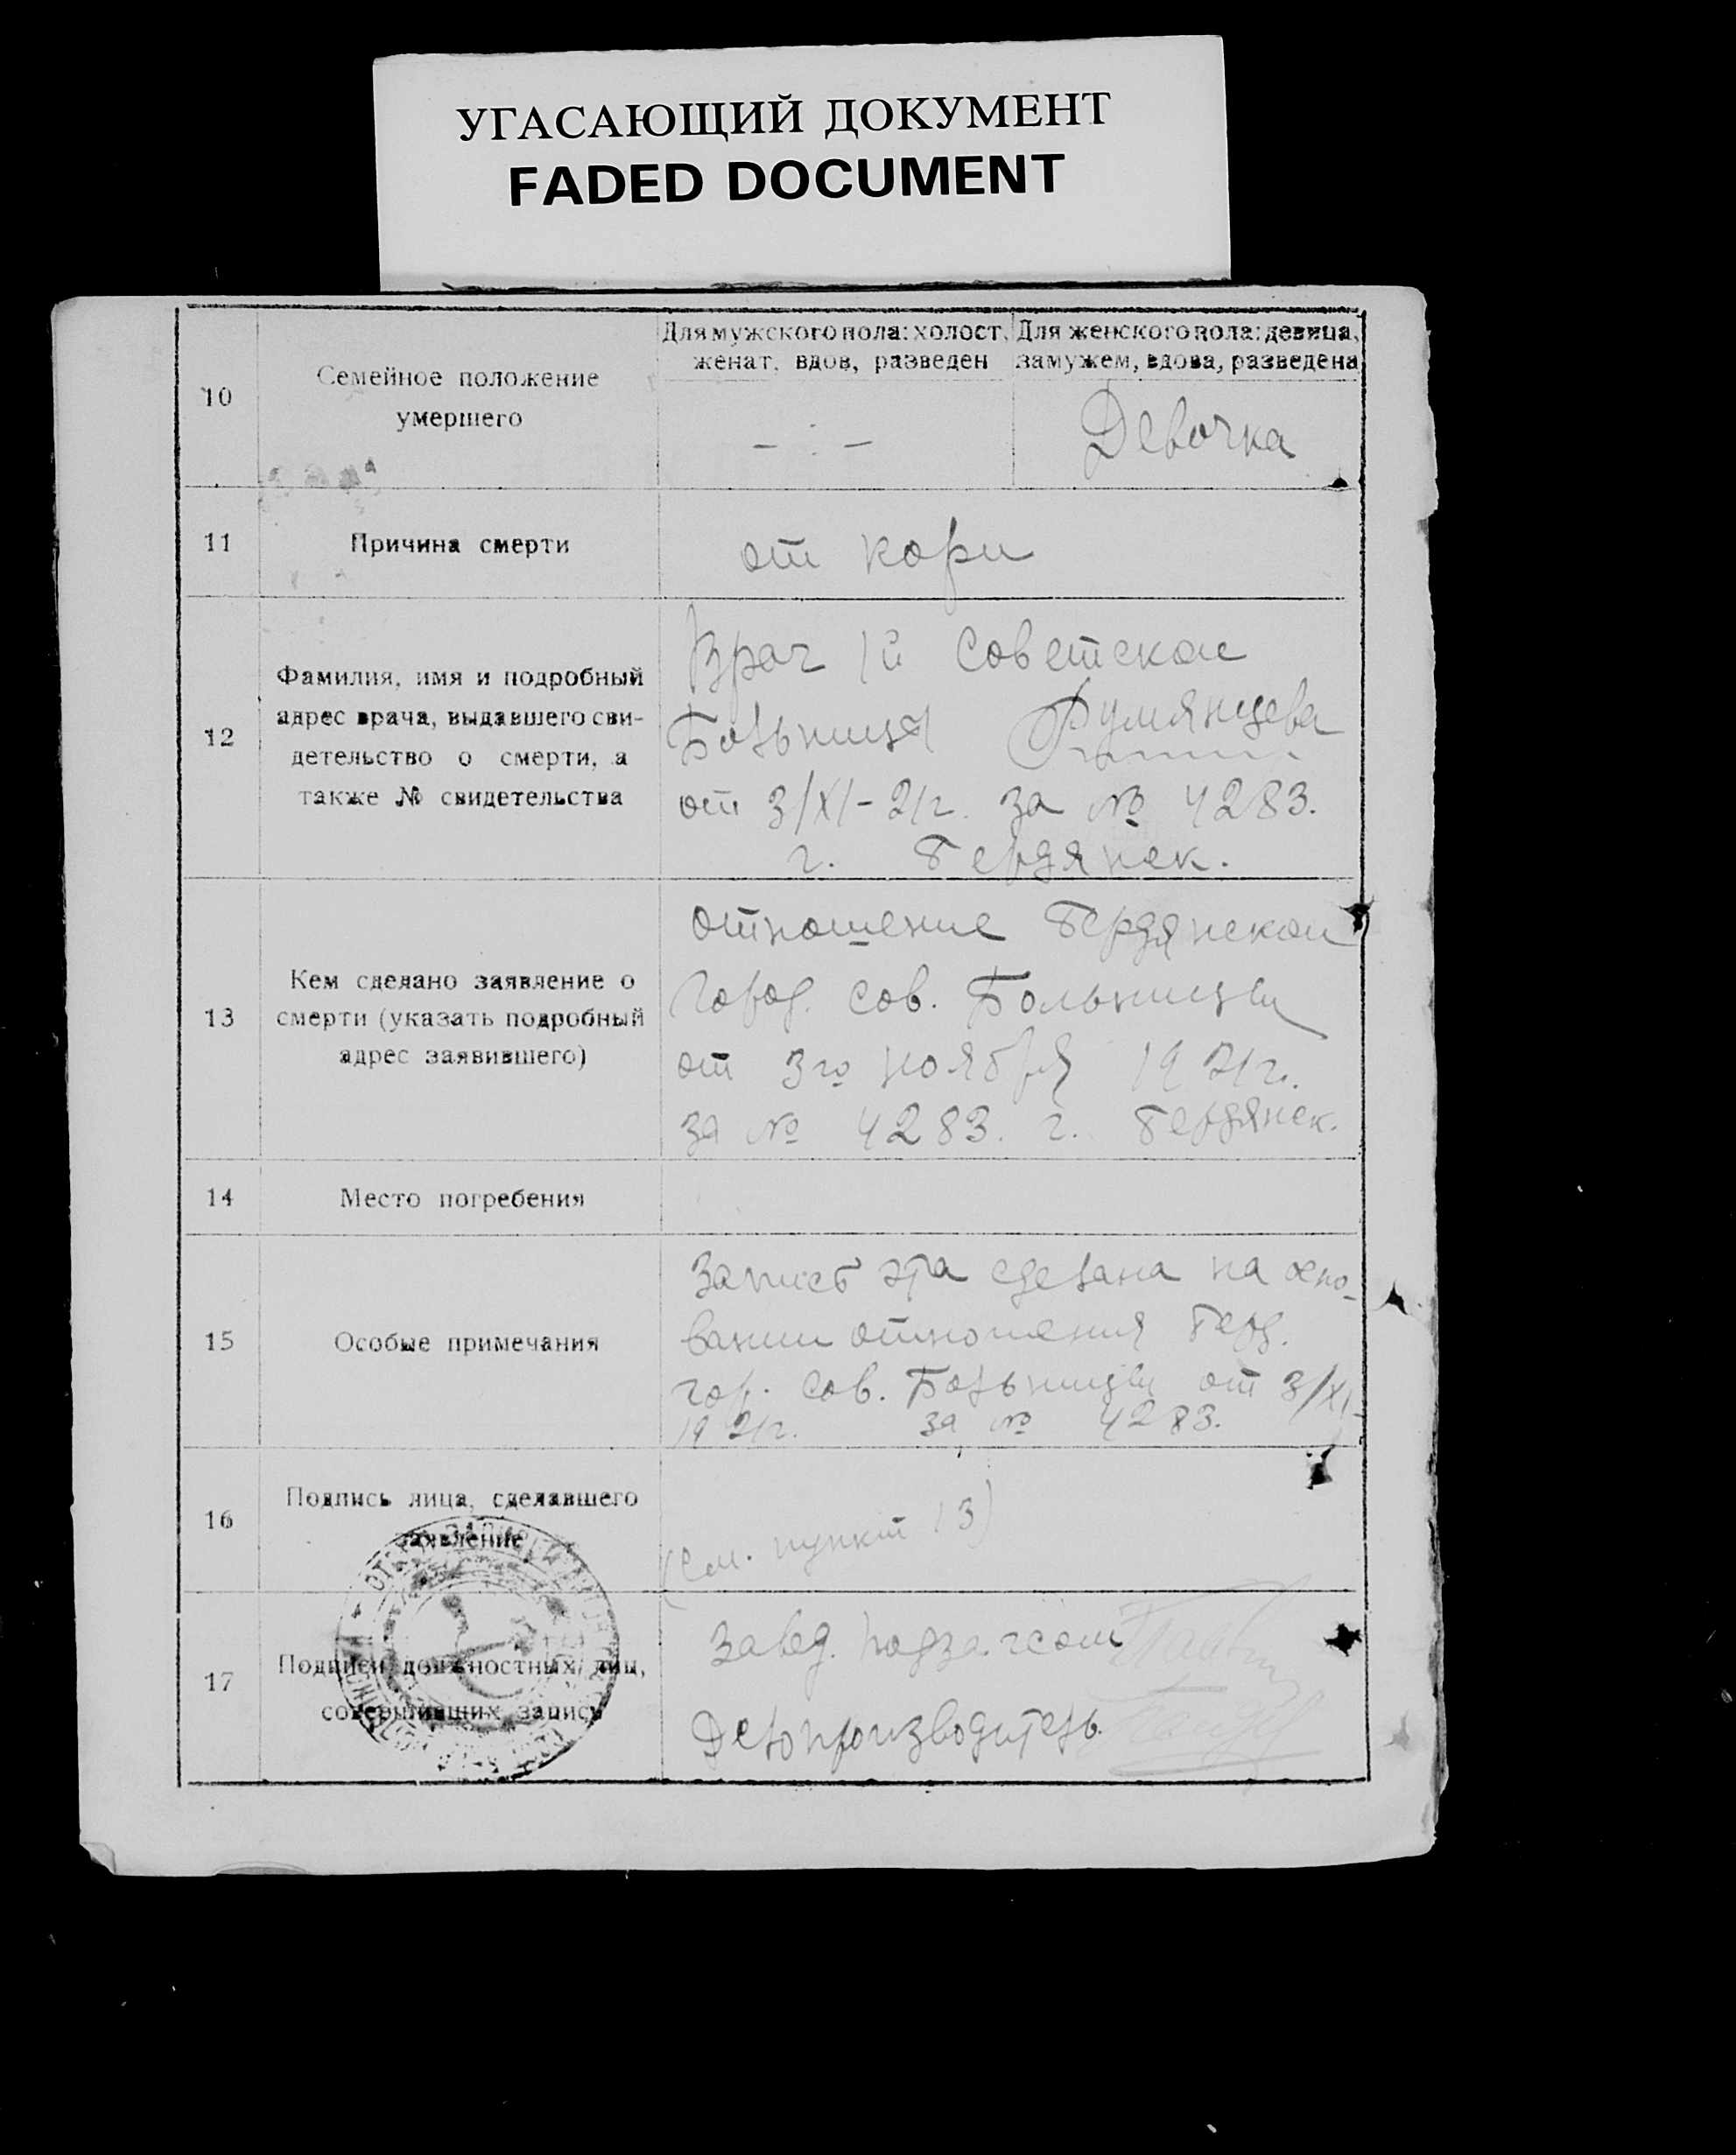 УГАСАЮЩИЙ ДОКУМЕНТ
FADED DOCUMENT
Для мужского пола: холост,
женат, вдов, разведен
Для женского пола: девица,
замужем, вдова, разведена
10
Семейное положение
умершего
– : –
Девочка
11
Причина смерти
от кори
12
Фамилия, имя и подробный
адрес врача, выдавшего сви-
детельство о смерти, а
также № свидетельства
Врач 1й Советской
Больницы Румянцева
от 3/XI-21г. за № 4283.
г. Бердянск.
13
Кем сделано заявление о
смерти (указать подробный
адрес заявившего)
Отношение Бердянской
Город. Сов. Больницы
от 3го ноября 1921г.
за № 4283. г. Бердянск.
14
Место погребения
15
Особые примечания
Запись эта сделана на осно-
вании отношения Берд.
гор. Сов. Больницы от 3/XI-
1921г. за № 4283.
16
Подпись лица, сделавшего
заявление
(См. пункт 13)
17
Подписи должностных лиц,
совершивших запись
Завед. подзагсом
Делопроизводитель